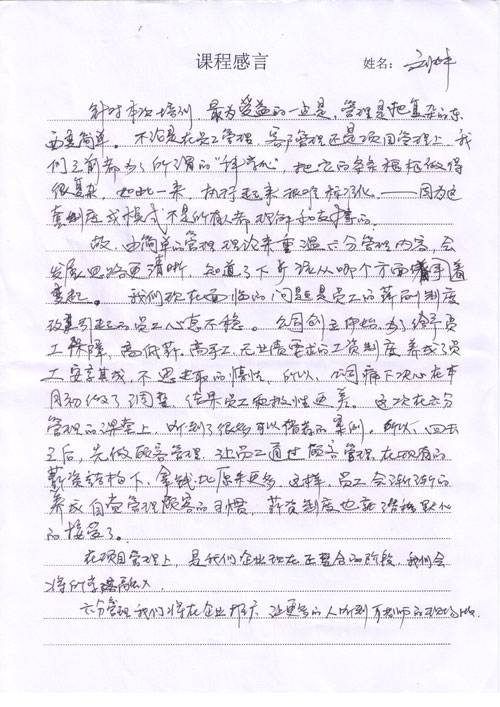 课程感言 姓名：
针对本次培训，最为受益的一点是，管理是把复杂的东
西变简单。不论是在员工管理、客户管理还是项目管理上，我
们之前都为了所谓的“科学化”，把它的条条框框做得
很复杂，如此一来，执行起来很难标准化。——因为这
套制度或模式不是所有人都理解和支撑的。
故，由简单的管理理论来重温六分管理内容，会
发展思路更清晰，知道了下步该从哪个方面着手
变起。我们现在面临的问题是员工的薪酬制度
改变引起的员工心态不稳。公司创立开始，为了给予员
工保障，高低薪、高手工、无业绩要求的工资制度养成了员
工安享其成，不思进取的惰性，所以，公司痛下决心在本
月初做了调整，结果员工积极性更差。这次在六分
管理的课堂上，听到了很多可以借荐的案例，所以，回去
之后，先做顾客管理，让员工通过顾客管理，在现有的
薪资结构下，拿钱比原来更多，这样，员工会渐渐的
养成自觉管理顾客的习惯，薪资制度也就潜移默化
的接受了。
在项目管理上，是我们企业现在正整合的阶段，我们会
将所学融入。
六分管理我们将在企业推广，让更多的人听到 老师的